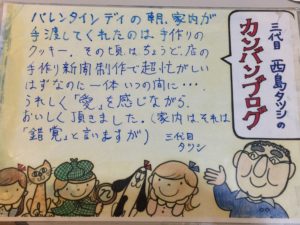 三代目 西島タツシの
カンバンブログ
バレンタインディの朝、家内が
手渡してくれたのは手作りの
クッキー。その頃はちょうど、店の
手作り新聞制作で超忙がしい
はずなのに一体いつの間に・・・
うれしく「愛」を感じながら、
おいしく頂きました。(家内はそれは
「錯覚」と言いますが)
三代目
タツシ